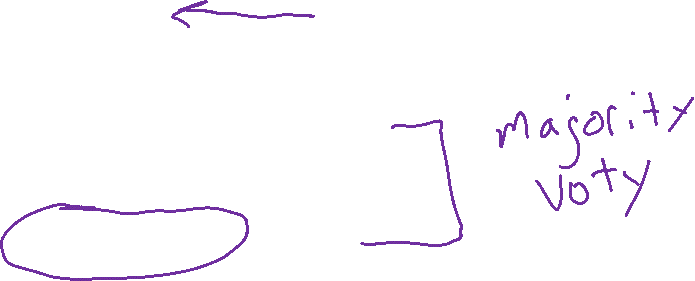 majority
voty